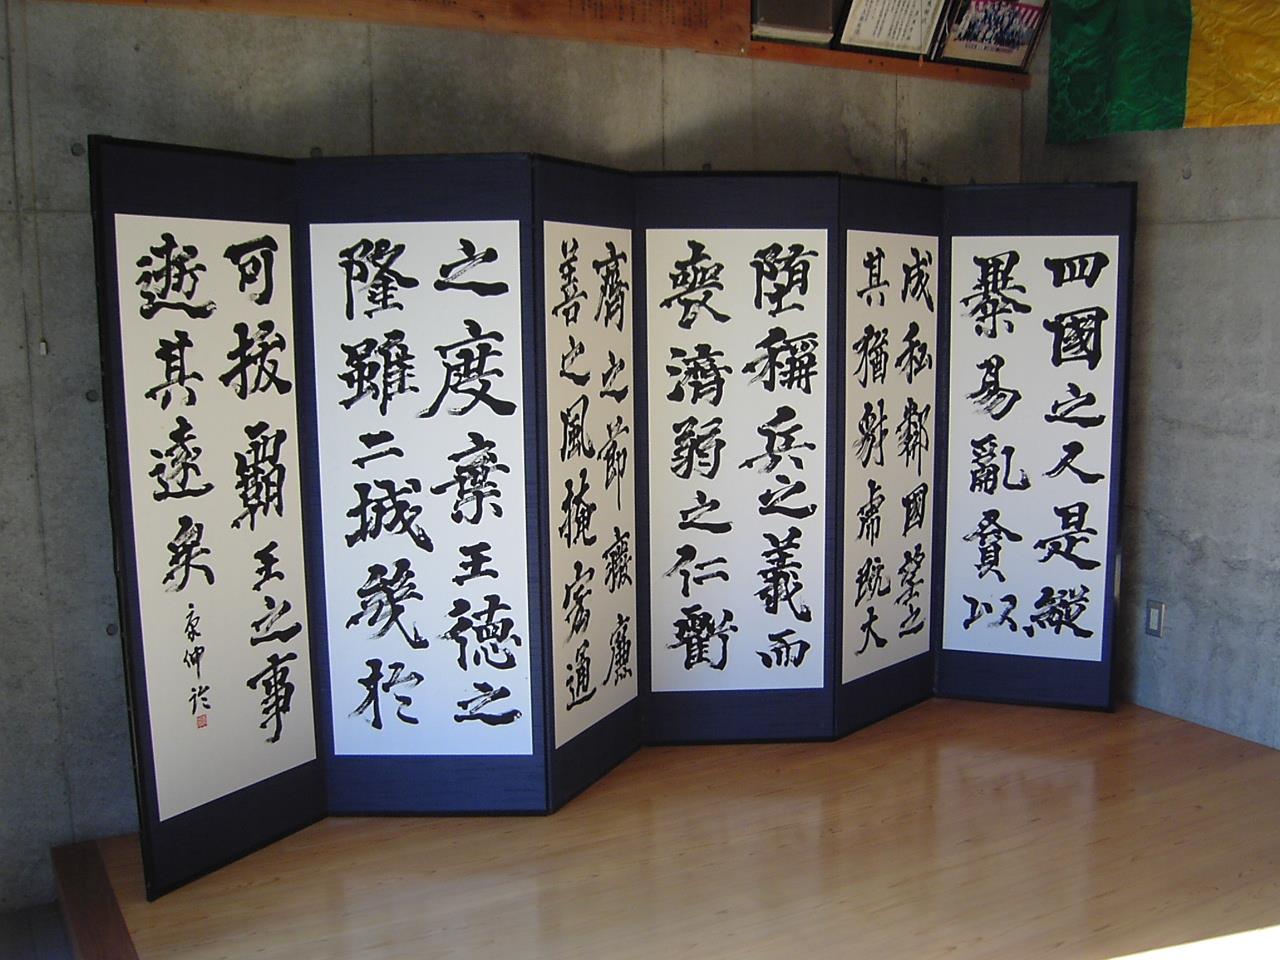 四國之人是縱
暴易亂貪以
成私鄰國望之
其猶豺虎既大
堕稱兵之義而
喪濟弱之仁虧
齊之節廢廉
善之風掩宏通
之度棄王德之
隆雖二城幾於
可拔霸王之事
逝其遠矣